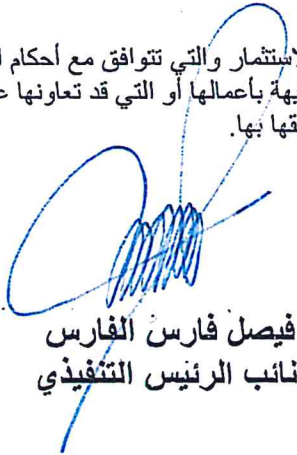 لاستثمار والتي تتوافق مع أحكام
يهة بأعمالها أو التي قد تعاونها
قها بها.
فيصل فارس الفارس
نائب الرئيس التنفيذي